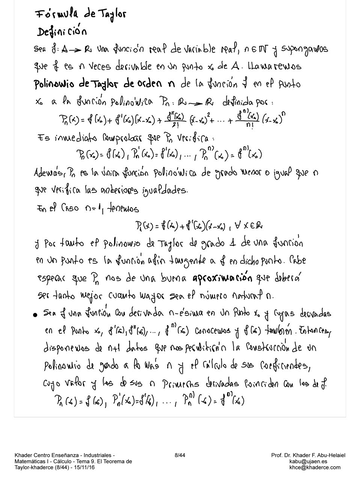 Fórmula de Taylor
Definición
Sea f: A → R una función real de variable real, n ∈ N y supongamos
que f es n veces derivable en un punto x₀ de A. Llamaremos
Polinomio de Taylor de orden n de la función f en el punto
x₀ a la función polinómica Pₙ: R → R definida por:
Pₙ(x) = f(x₀) + f'(x₀)(x-x₀) + f''(x₀)/2! (x-x₀)² + ... + fⁿ⁾(x₀)/n! (x-x₀)ⁿ
Es inmediato comprobar que Pₙ verifica:
Pₙ(x₀) = f(x₀), Pₙ'(x₀) = f'(x₀), ..., Pₙⁿ⁾(x₀) = fⁿ⁾(x₀)
Además, Pₙ es la única función polinómica de grado menor o igual que n
que verifica las anteriores igualdades.
En el caso n=1, tenemos
P₁(x) = f(x₀) + f'(x₀)(x-x₀), ∀ x ∈ R
y por tanto el polinomio de Taylor de grado 1 de una función
en un punto es la función afín tangente a f en dicho punto. Cabe
esperar que Pₙ nos de una buena aproximación que deberá
ser tanto mejor cuanto mayor sea el número natural n.
• Sea f una función con derivada n-ésima en un punto x₀ y cuyas derivadas
en el punto x₀, f'(x₀), f''(x₀), ..., fⁿ⁾(x₀) conocemos y f(x₀) también. Entonces,
disponemos de n+1 datos que nos permitirían la construcción de un
polinomio de grado a lo más n y el cálculo de sus coeficientes,
cuyo valor y los de sus n primeras derivadas coincidan con los de f
Pₙ(x₀) = f(x₀), Pₙ'(x₀) = f'(x₀), ..., Pₙⁿ⁾(x₀) = fⁿ⁾(x₀)
Khader Centro Enseñanza - Industriales -
Matemáticas I - Cálculo - Tema 9. El Teorema de
Taylor-khaderce (8/44) - 15/11/16
8/44
Prof. Dr. Khader F. Abu-Helaiel
kabu@ujaen.es
khce@khaderce.com